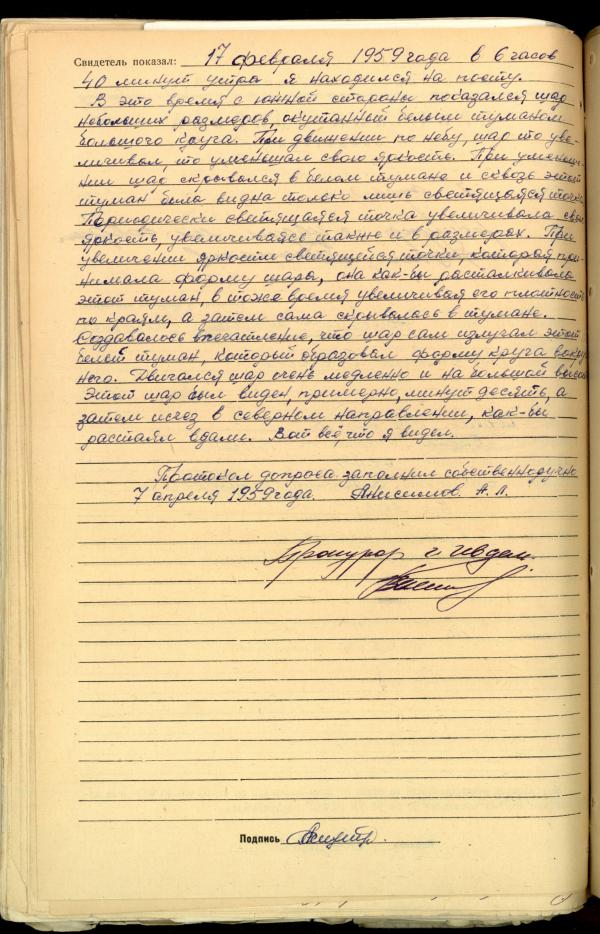 Свидетель показал: 17 февраля 1959 года в 6 часов
40 минут утра я находился на посту.
В это время с южной стороны показался шар
небольших размеров, окутанный белым туманом
большого круга. При движении по небу, шар то уве-
личивал, то уменьшал свою яркость. При уменьше-
нии шар скрывался в белом тумане и сквозь этот
туман была видна только лишь светящаяся точка.
Периодически светящаяся точка увеличивала свою
яркость, увеличиваясь также и в размерах. При
увеличении яркости светящейся точки, которая при-
нимала форму шара, она как-бы расталкивала
этот туман, в тоже время увеличивая его плотность
по краям, а затем сама скрывалась в тумане.
Создавалось впечатление, что шар сам излучал этот
белый туман, который образовал форму круга вокруг
него. Двигался шар очень медленно и на большой высоте
Этот шар был виден, примерно, минут десять, а
затем исчез в северном направлении, как-бы
растаял вдали. Вот всё, что я видел.
Протокол допроса заполнил собственноручно
7 апреля 1959 года. Анисимов А.Л.
Прокурор г. Ивдель
Подпись